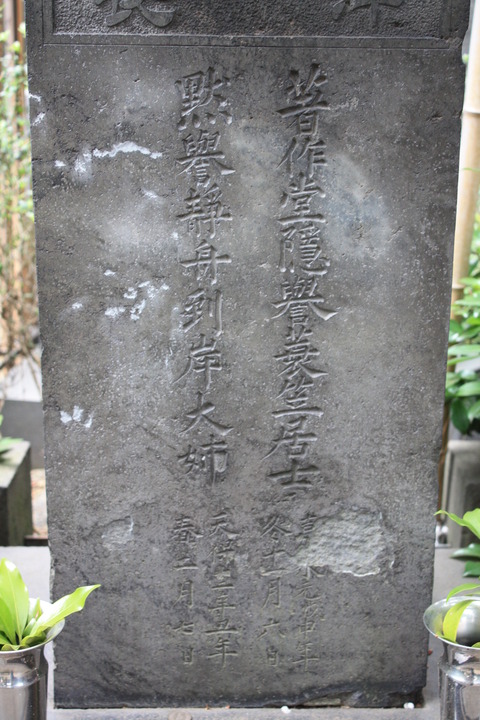 著作堂隱譽蓑笠居士
元戊申年
冬十一月六日
默譽靜舟到岸大姉
天保十二辛丑年
春二月七日